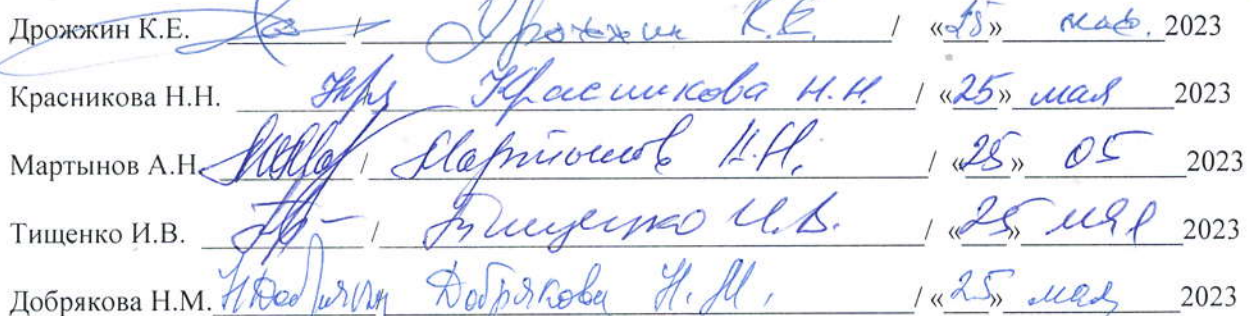 Дрожжин К.Е. / Дрожжин К.Е. / «25» мая 2023
Красникова Н.Н. Красникова Н.Н. / «25» мая 2023
Мартынов А.Н. / Мартынов А.Н. / «25» 05 2023
Тищенко И.В. / Тищенко И.В. / «25» мая 2023
Добрякова Н.М. Добрякова Н.М. / «25» мая 2023